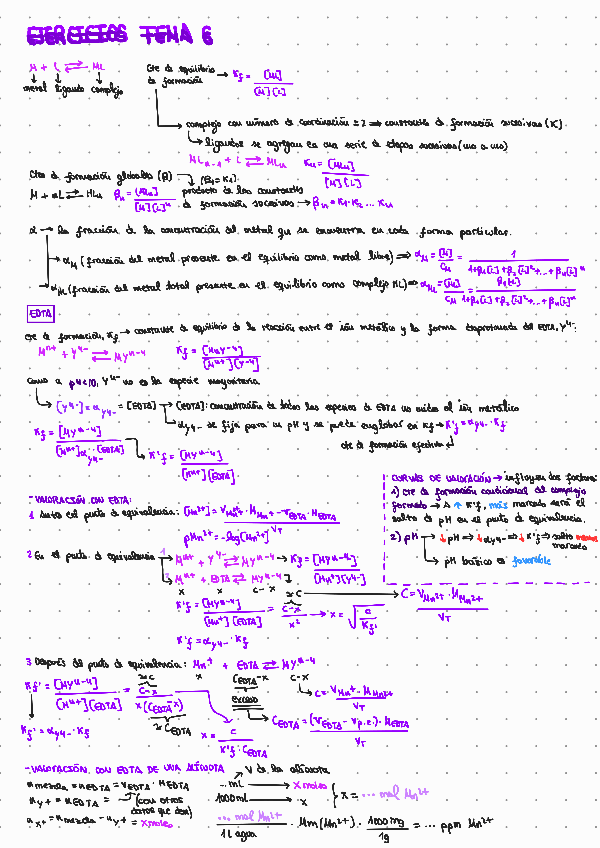 EJERCICIOS TEMA 6
M + L ⇄ ML
metal ligando complejo
Cte de equilibrio de formación → Kf = [ML] / [M][L]
complejo con número de coordinación ≥ 2 ⇒ constantes de formación sucesivas (K).
ligandos se agregan en una serie de etapas sucesivas (uno a uno)
MLn-1 + L ⇄ MLn Kn = [MLn] / [M][L]
Cte de formación globales (β) (β1 = K1)
M + nL ⇄ MLn βn = [MLn] / [M][L]^n producto de las constantes de formación sucesivas → βn = K1·K2 ... Kn
α → la fracción de la concentración del metal que se encuentra en cada forma particular.
αM (fracción del metal presente en el equilibrio como metal libre) ⇒ αM = [M] / CM = 1 / 1+β1[L]+β2[L]²+...+βn[L]^n
αML (fracción del metal total presente en el equilibrio como complejo ML) ⇒ αML = [ML] / CM = β1[L] / 1+β1[L]+β2[L]²+...+βn[L]^n
EDTA
cte de formación, Kf → constante de equilibrio de la reacción entre el ión metálico y la forma desprotonada del EDTA, Y4-:
M^n+ + Y^4- ⇄ MY^n-4 Kf = [MY^n-4] / [M^n+][Y^4-]
como a pH<10, Y4- no es la especie mayoritaria
[Y4-] = αY4- · [EDTA] → [EDTA]: concentración de todas las especies de EDTA no unidas al ión metálico
αY4- se fija para un pH y se puede englobar en Kf → K'f = αY4- · Kf
cte de formación efectiva
Kf = [MY^n-4] / [M^n+] αY4- · [EDTA] → K'f = [MY^n-4] / [M^n+][EDTA]
CURVAS DE VALORACIÓN → influyen dos factores
1) Cte de formación condicional del complejo
formado → A ↑ K'f, más marcado será el
salto de pH en el punto de equivalencia.
2) pH → ↓ pH ⇒ ↓ αY4- ⇒ ↓ K'f ⇒ salto menos marcado
pH básico es favorable
-VALORACIÓN CON EDTA:
1 Antes del punto de equivalencia: [Mn²+] = VMn²+ · MMn²+ - VEDTA · MEDTA / VT
pMn²+ = -log[Mn²+]
2 En el punto de equivalencia
1 M^n+ + Y^4- ⇄ MY^n-4 → Kf = [MY^n-4] / [M^n+][Y^4-]
2 M^n+ + EDTA ⇄ MY^n-4
x x c-x
K'f = [MY^n-4] / [M^n+][EDTA] = c-x / x² → x = √(c / K'f)
≈c → C = VMn²+ · MMn²+ / VT
K'f = αY4- · Kf
3 Después del punto de equivalencia: M^n+ + EDTA ⇄ MY^n-4
x CEDTA-x c-x
exceso
Kf' = [MY^n-4] / [M^n+][EDTA] = c-x / x(CEDTA-x)
≈c
≈CEDTA
C = VMn²+ · MMn²+ / VT
Kf' = αY4- · Kf
x = c / K'f · CEDTA
CEDTA = (VEDTA - Vp.e.) · MEDTA / VT
-VALORACIÓN CON EDTA DE UNA ALÍCUOTA
V de la alícuota
n mezcla = nEDTA = VEDTA · MEDTA
... mL → x moles
nY+ = nEDTA = (con otros datos que dan)
1000mL → x
x = ... mol Mn²+
nX+ = n mezcla - nY+ = x moles
... mol Mn²+ / 1L agua · Mm(Mn²+) · 1000mg / 1g = ... ppm Mn²+